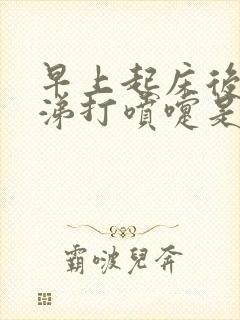 早上起床後
涕打噴嚏是
霸啵兒奔